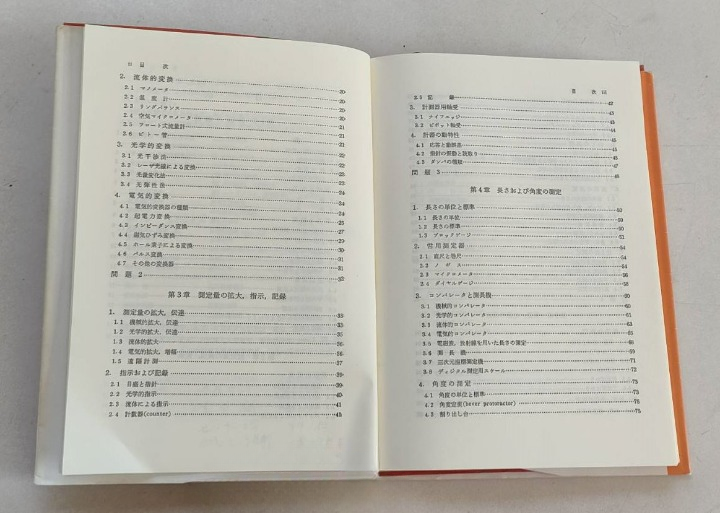 目次
2. 流体的変換 20
2.1 マノメータ 20
2.2 温度計 20
2.3 リングバランス 21
2.4 空気マイクロメータ 21
2.5 フロート式流量計 21
2.6 ピトー管 21
3. 光学的変換
3.1 光干渉法
3.2 レーザ光線による変換
3.3 光量変化法
3.4 光弾性法
4. 電気的変換 24
4.1 電気的変換器の種類
4.2 起電力変換
4.3 インピーダンス変換
4.4 磁気ひずみ変換
4.5 ホール素子による変換
4.6 パルス変換
4.7 その他の変換器
問題 2
第3章 測定量の拡大，指示，記録
1. 測定量の拡大，伝達
1.1 機械的拡大，伝達
1.2 光学的拡大，伝達 35
1.3 流体的拡大 36
1.4 電気的拡大，増幅 36
1.5 遠隔計測 37
2. 指示および記録 39
2.1 目盛と指針 39
2.2 光学的指示 40
2.3 流体による指示 41
2.4 計数器(counter)
目次
2.5 記録 42
3. 計測器用軸受
3.1 ナイフエッジ
3.2 ピボット軸受
4. 計器の動特性
4.1 応答と動誤差
4.2 指針の振動と読取り
4.3 ダンパの種類
問題 3
第4章 長さおよび角度の測定
1. 長さの単位と標準
1.1 長さの単位
1.2 長さの標準
1.3 ブロックゲージ
2. 常用測定器 54
2.1 直尺と巻尺 54
2.2 ノギス
2.3 マイクロメータ
2.4 ダイヤルゲージ
3. コンパレータと測長機
3.1 機械的コンパレータ
3.2 光学的コンパレータ 61
3.3 流体的コンパレータ
3.4 電気的コンパレータ
3.5 電磁波，放射線を用いた長さの測定 68
3.6 測長機
3.7 三次元座標測定機 71
3.8 ディジタル測定用スケール 72
4. 角度の測定 73
4.1 角度の単位と標準 73
4.2 角度定規(bever protractor)
4.3 割り出し台 75